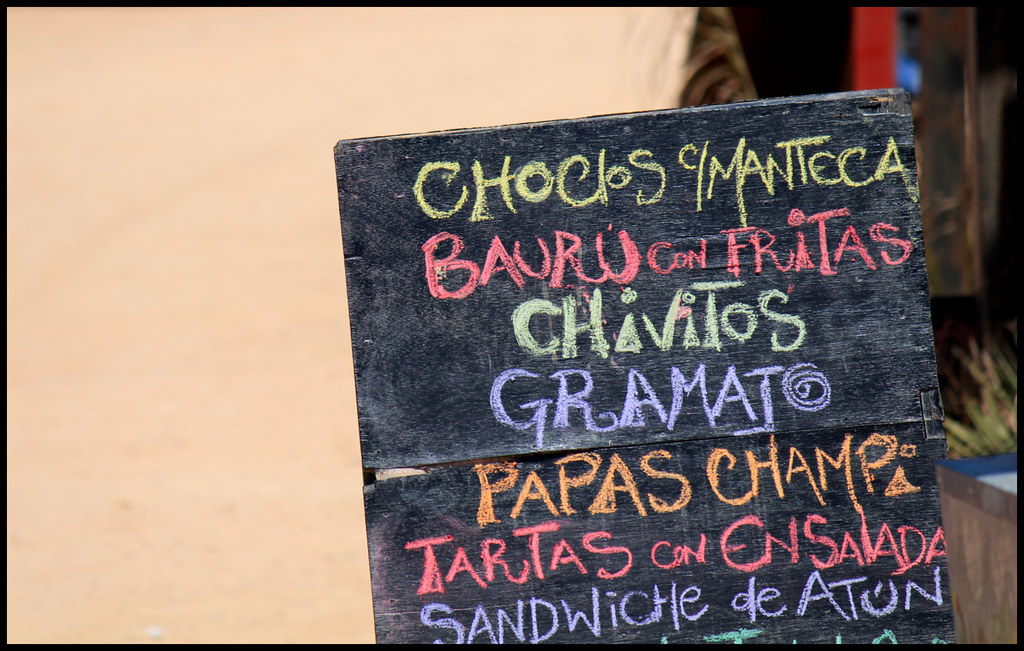 CHOCloS c/MANTECA
BAURÚ CON FRiTAS
CHiViTOS
GRAMAJO
PAPAS CHAMPi
TARTAS CON ENSALADA
SANDWiCHE de ATÚN